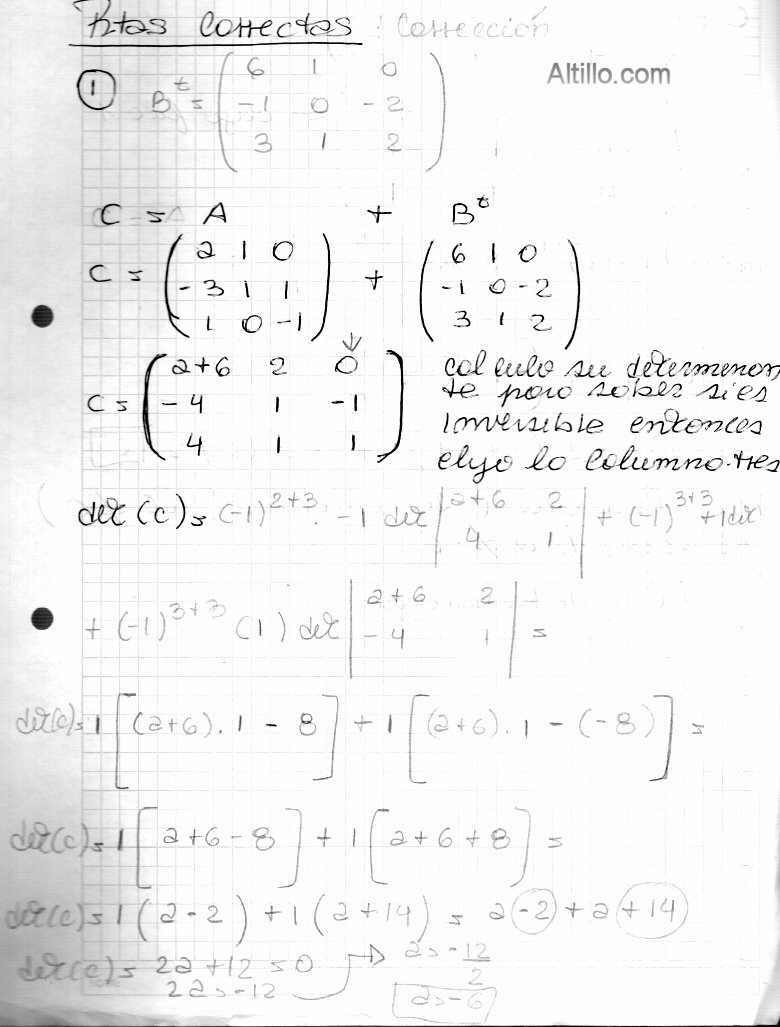 Rtas Correctas : Corrección
Altillo.com
① B^t = ( 6 1 0
-1 0 -2
3 1 2 )
C = A + B^t
C = ( a 1 0
-3 1 1
1 0 -1 ) + ( 6 1 0
-1 0 -2
3 1 2 )
C = ( a+6 2 0
-4 1 -1
4 1 1 )
calculo su determinan
te para saber si es
inversible entonces
elijo la columna tres
det (C) = (-1)^2+3 . -1 det | a+6 2
4 1 | + (-1)^3+3 +1 det
+ (-1)^3+3 (1) det | a+6 2
-4 1 | =
det(c) = 1 [ (a+6) . 1 - 8 ] + 1 [ (a+6) . 1 - (-8) ] =
det(c) = 1 [ a+6-8 ] + 1 [ a+6+8 ] =
det(c) = 1 ( a-2 ) + 1 ( a+14 ) = a -2 + a +14
det(c) = 2a +12 = 0 → a = -12/2
2a = -12
a = -6